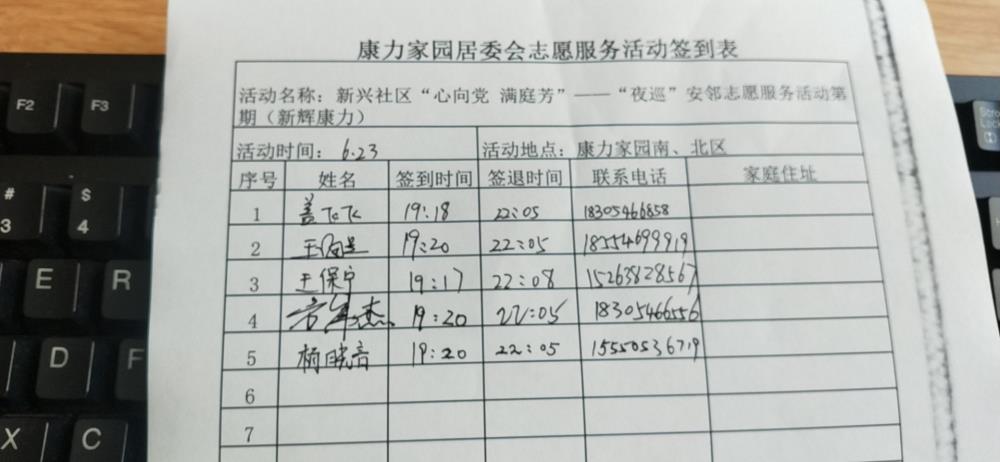 康力家园居委会志愿服务活动签到表
活动名称：新兴社区“心向党 满庭芳”——“夜巡”安邻志愿服务活动第
期（新辉康力）
活动时间：6.23 活动地点：康力家园南、北区
序号 姓名 签到时间 签退时间 联系电话 家庭住址
1 盖 19:18 22:05 18305466858
2 王 19:20 22:05 18554699919
3 王保宁 19:17 22:08 15263828567
4 19:20 22:05 18305466556
5 杨晓音 19:20 22:05 15550536719
6
7
F2
F3
#
3
$
4
E
R
D
F
X
C